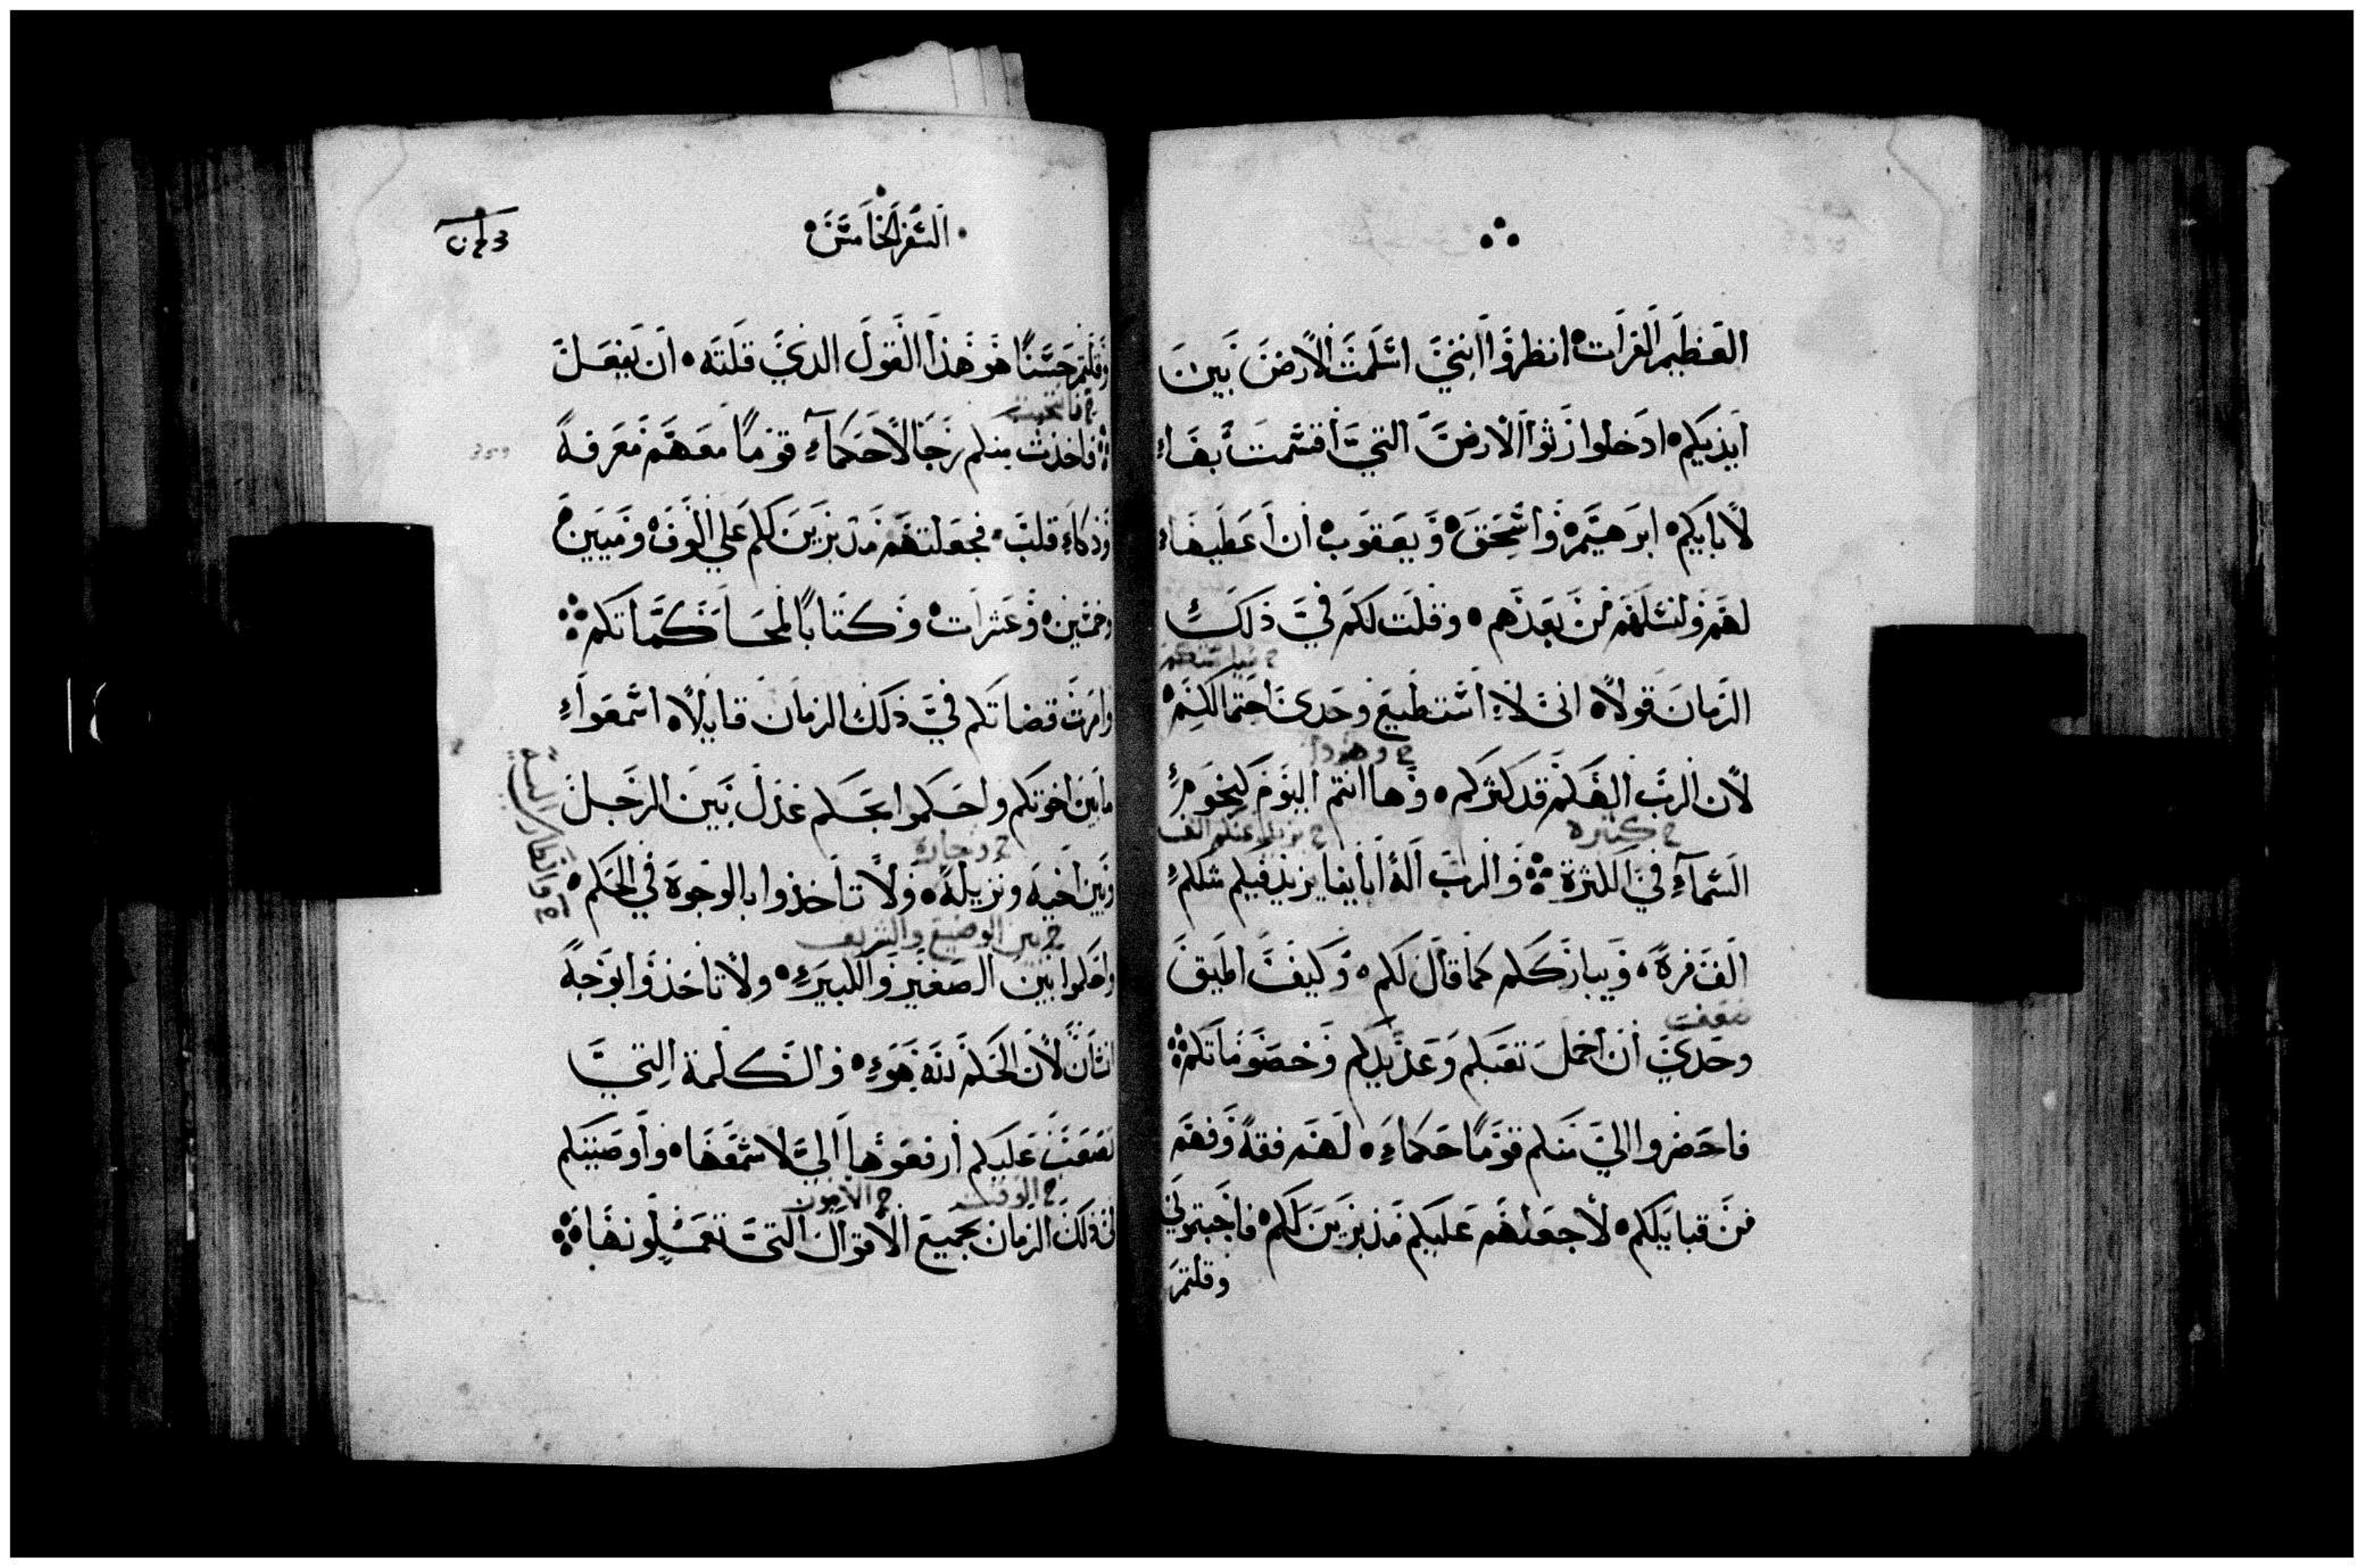 العظيم الفرات انظروا انني اسلمت الارض بين
ايديكم ادخلوا رثوا الارض التي اقسمت بها
لابايكم ابرهيم واسحق ويعقوب ان اعطيها
لهم ولنسلهم من بعدهم وقلت لكم في ذلك
الزمان قولا اني لا استطيع وحدي احتمالكم
ح وهوذا
لان الرب الهكم قد كثركم وها انتم اليوم كنجوم
ح كثيرة
ح يزيد عليكم الف
السمآء في الكثرة والرب اله اباينا يزيد فيكم شكلكم
الف مرة ويبارككم كما قال لكم وكيف اطيق
وحدي ان احمل تعبكم وخصوماتكم
فاحضروا الي منكم قوما حكماء لهم فقه وفهم
من قبايلكم لاجعلهم عليكم مدبرين لكم فاجبتوني
وقلتم
السفر الخامس
وقلتم حسنا هو هذا القول الذي قلته ان يفعل
فاخذت منكم رجالا حكمآء قوما معهم معرفة
وذكاء قلب فجعلتهم مدبرين لكم علي الوف وميين
وخمسين وعشرات وكتابا لمحاكماتكم
وامرت قضاتكم في ذلك الزمان قايلا اسمعوا
ما بين اخوتكم واحكموا بحكم عدل بين الرجل
وبين اخيه ونزيله ولا تاخذوا بالوجوه في الحكم
ح بين الوضيع والشريف
واحكموا بين الصغير والكبير ولا تاخذوا بوجه
انسان لان الحكم لله هو والكلمة التي
تصعب عليكم ارفعوها الي لاسمعها واوصيتكم
ح الوقت
ح الامور
في ذلك الزمان بجميع الاقوال التي تعملونها